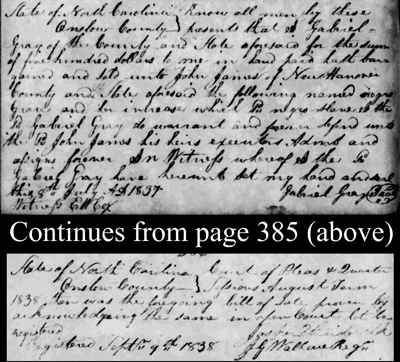 State of North Carolina } Know all men by these
Onslow County } presents that I Gabriel
Gray of the County and State aforesaid for the sum
of five hundred dollars to me in hand paid hath bar-
gained and sold unto John James of New Hanover
County and State aforesaid the following named negro
Grace and her increase which sd negro slave I the
sd Gabriel Gray do warrant and forever defend unto
the sd John James his heirs executors Admrs and
assigns forever In Witness whereof I the sd
Gabriel Gray have hereunto set my hand and seal
this 8th July AD 1837 Gabriel Gray (Seal)
Witness
Continues from page 385 (above)
State of North Carolina } Court of Pleas & Quarter
Onslow County } Sessions August Term
1838, then was the foregoing bill of sale proven by
acknowledging the same in open Court let be
registered
Registered Septr 9th 1838 Wallace Regr